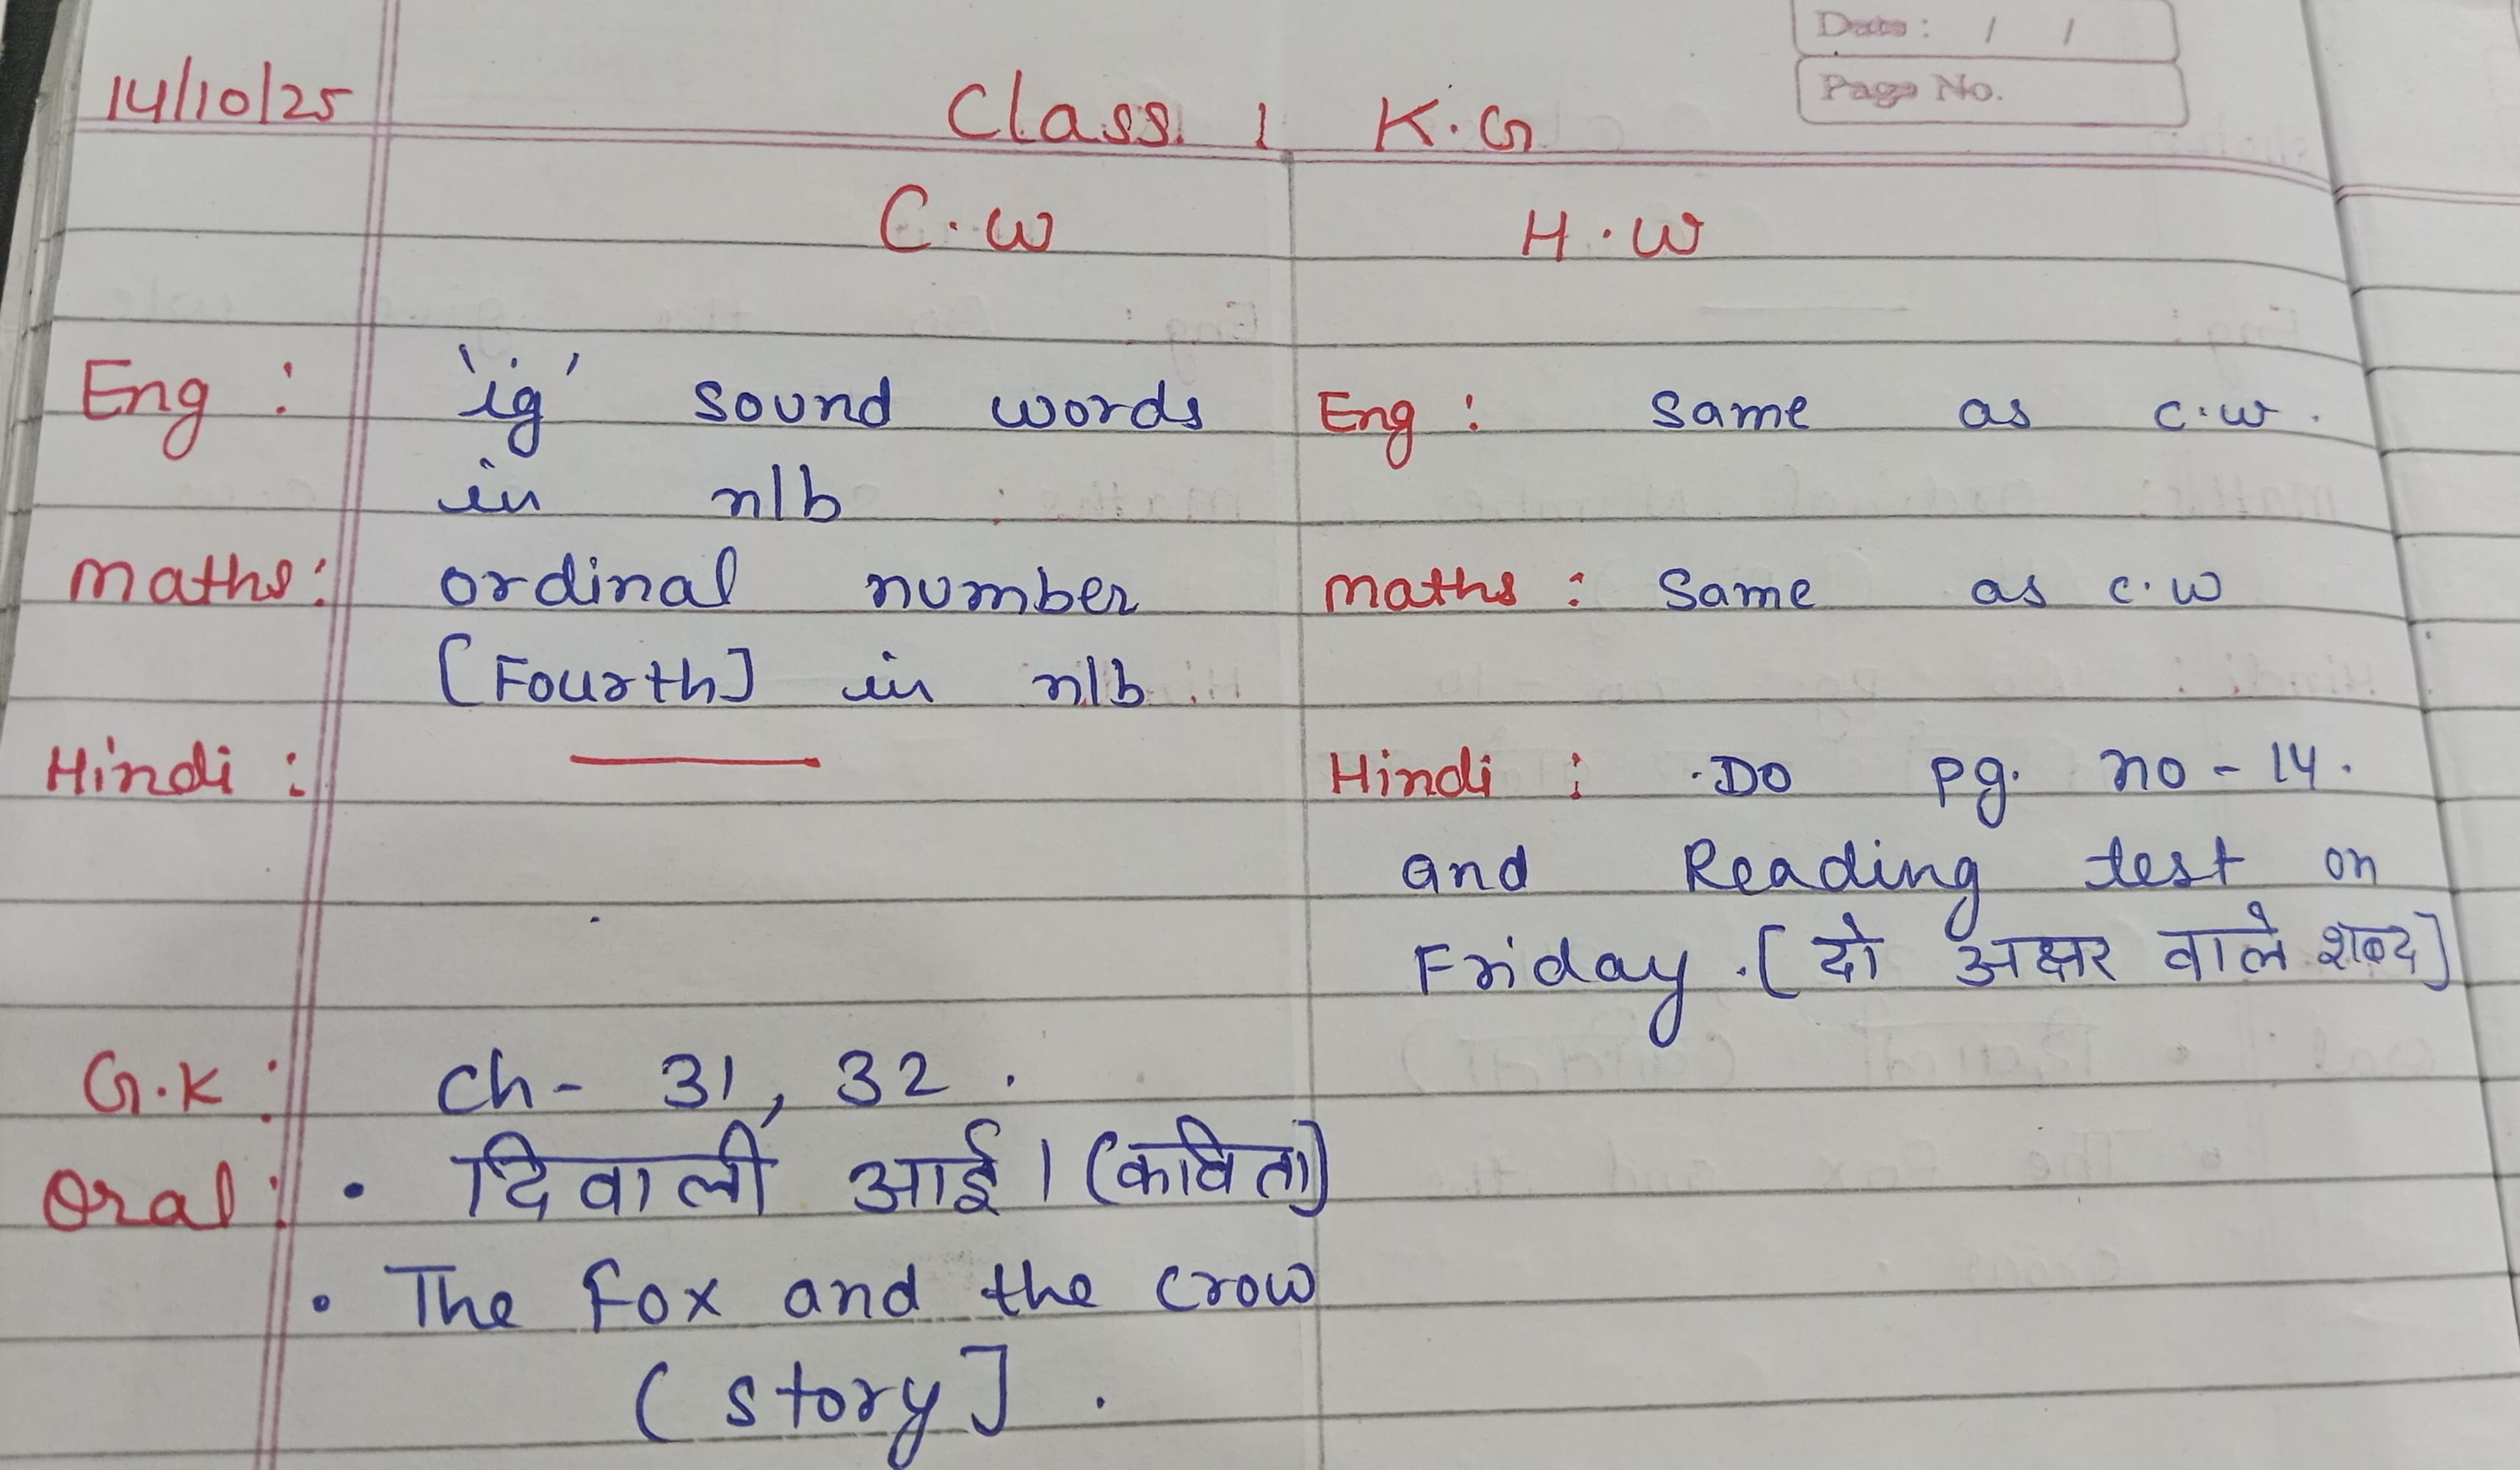 Date: / /
Page No.
14/10/25 Class 1 K.G
C.W H.W
Eng : 'ig' sound words Eng : Same as c.w.
in n/b
Maths: ordinal number Maths : Same as c.w
[Fourth] in n/b
Hindi : —— Hindi : .Do pg. no - 14.
and Reading test on
Friday .[दो अक्षर वाले शब्द]
G.K : ch- 31, 32 .
Oral : • दिवाली आई। (कविता)
• The Fox and the crow
(story] .